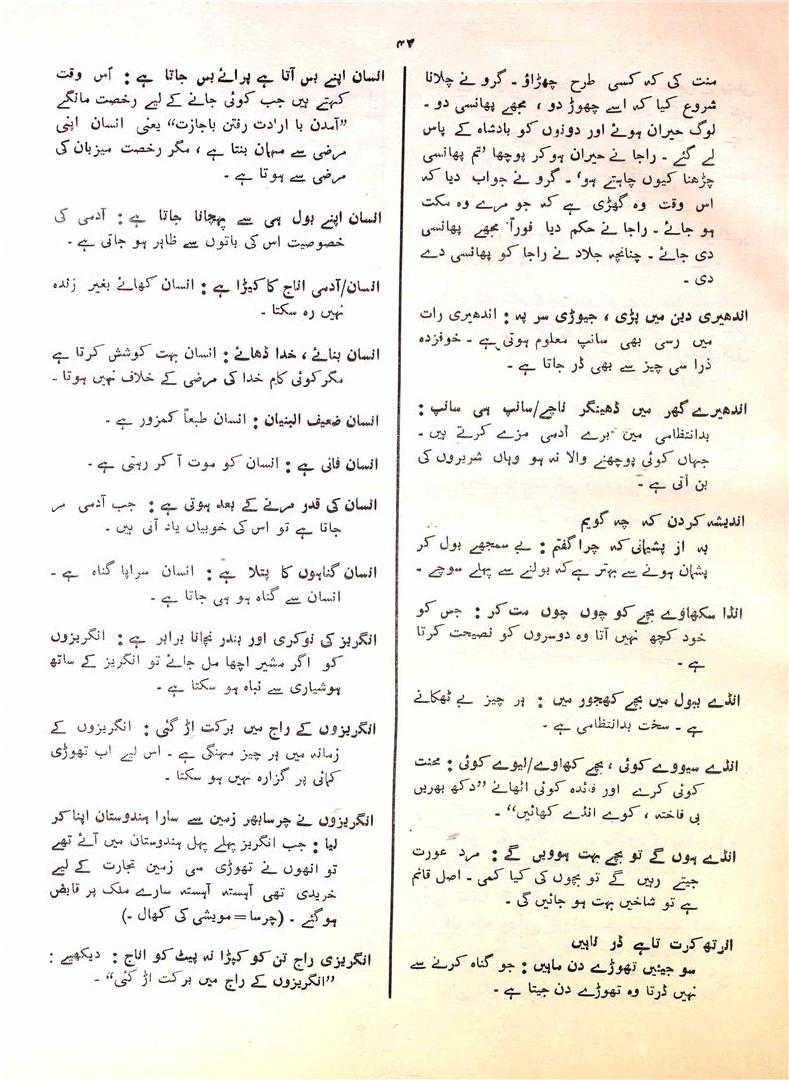 ۴۳
منت کی کہ کسی طرح چھڑاؤ ۔ گرو نے چلانا
شروع کیا کہ اسے چھوڑ دو ، مجھے پھانسی دو ۔
لوگ حیران ہوئے اور دونوں کو بادشاہ کے پاس
لے گئے ۔ راجا نے حیران ہو کر پوچھا ’تم پھانسی
چڑھنا کیوں چاہتے ہو‘ ۔ گرو نے جواب دیا کہ
اس وقت وہ گھڑی ہے کہ جو مرے وہ مکت
ہو جائے ۔ راجا نے حکم دیا فوراً مجھے پھانسی
دی جائے ۔ چنانچہ جلاد نے راجا کو پھانسی دے
دی ۔
اندھیری دین میں پڑی ، جیوڑی سرپ : اندھیری رات
میں رسی بھی سانپ معلوم ہوتی ہے ۔ خوفزدہ
ذرا سی چیز سے بھی ڈر جاتا ہے ۔
اندھیرے گھر میں ڈھینگر ناچے/سانپ ہی سانپ :
بدانتظامی میں برے آدمی مزے کرتے ہیں ۔
جہاں کوئی پوچھنے والا نہ ہو وہاں شریروں کی
بن آتی ہے ۔
اندیشہ کردن کہ چہ گویم
بہ از پشیمانی کہ چرا گفتم : بے سمجھے بول کر
پشیمان ہونے سے بہتر ہے کہ بولنے سے پہلے سوچے ۔
انڈا سکھاوے بچے کو چوں چوں مت کر : جس کو
خود کچھ نہیں آتا وہ دوسروں کو نصیحت کرتا
ہے ۔
انڈے ببول میں بچے کھجور میں : ہر چیز بے ٹھکانے
ہے ۔ سخت بدانتظامی ہے ۔
انڈے سیووے کوئی ، بچے کھاوے/لیوے کوئی : محنت
کوئی کرے اور فائدہ کوئی اٹھائے ”دکھ بھریں
بی فاختہ ، کوے انڈے کھائیں“ ۔
انڈے ہوں گے تو بچے بہت ہوویں گے : مرد عورت
جیتے رہیں گے تو بچوں کی کیا کمی ۔ اصل قائم
ہے تو شاخیں بہت ہو جائیں گی ۔
انرتھ کرت تاہے ڈر ناہیں
سو جیئیں تھوڑے دن ماہیں : جو گناہ کرنے سے
نہیں ڈرتا وہ تھوڑے دن جیتا ہے ۔
انسان اپنے بس آتا ہے پرائے بس جاتا ہے : اُس وقت
کہتے ہیں جب کوئی جانے کے لیے رخصت مانگے
”آمدن با ارادت رفتن باجازت“ یعنی انسان اپنی
مرضی سے مہمان بنتا ہے ، مگر رخصت میزبان کی
مرضی سے ہوتا ہے ۔
انسان اپنے بول ہی سے پہچانا جاتا ہے : آدمی کی
خصوصیت اس کی باتوں سے ظاہر ہو جاتی ہے ۔
انسان/آدمی اناج کا کیڑا ہے : انسان کھائے بغیر زندہ
نہیں رہ سکتا ۔
انسان بنائے ، خدا ڈھائے : انسان بہت کوشش کرتا ہے
مگر کوئی کام خدا کی مرضی کے خلاف نہیں ہوتا ۔
انسان ضعیف البنیان : انسان طبعاً کمزور ہے ۔
انسان فانی ہے : انسان کو موت آ کر رہتی ہے ۔
انسان کی قدر مرنے کے بعد ہوتی ہے : جب آدمی مر
جاتا ہے تو اس کی خوبیاں یاد آتی ہیں ۔
انسان گناہوں کا پتلا ہے : انسان سراپا گناہ ہے ۔
انسان سے گناہ ہو ہی جاتا ہے ۔
انگریز کی نوکری اور بندر نچانا برابر ہے : انگریزوں
کو اگر مشیر اچھا مل جائے تو انگریز کے ساتھ
ہوشیاری سے نباہ ہو سکتا ہے ۔
انگریزوں کے راج میں برکت اڑ گئی : انگریزوں کے
زمانہ میں ہر چیز مہنگی ہے ۔ اس لیے اب تھوڑی
کمائی پر گزارہ نہیں ہو سکتا ۔
انگریزوں نے چرسا بھر زمین سے سارا ہندوستان اپنا کر
لیا : جب انگریز پہلے پہل ہندوستان میں آئے تھے
تو انھوں نے تھوڑی سی زمین تجارت کے لیے
خریدی تھی آہستہ آہستہ سارے ملک پر قابض
ہوگئے ۔ (چرسا=مویشی کی کھال ۔)
انگریزی راج تن کو کپڑا نہ پیٹ کو اناج : دیکھیے :
”انگریزوں کے راج میں برکت اڑ گئی“ ۔